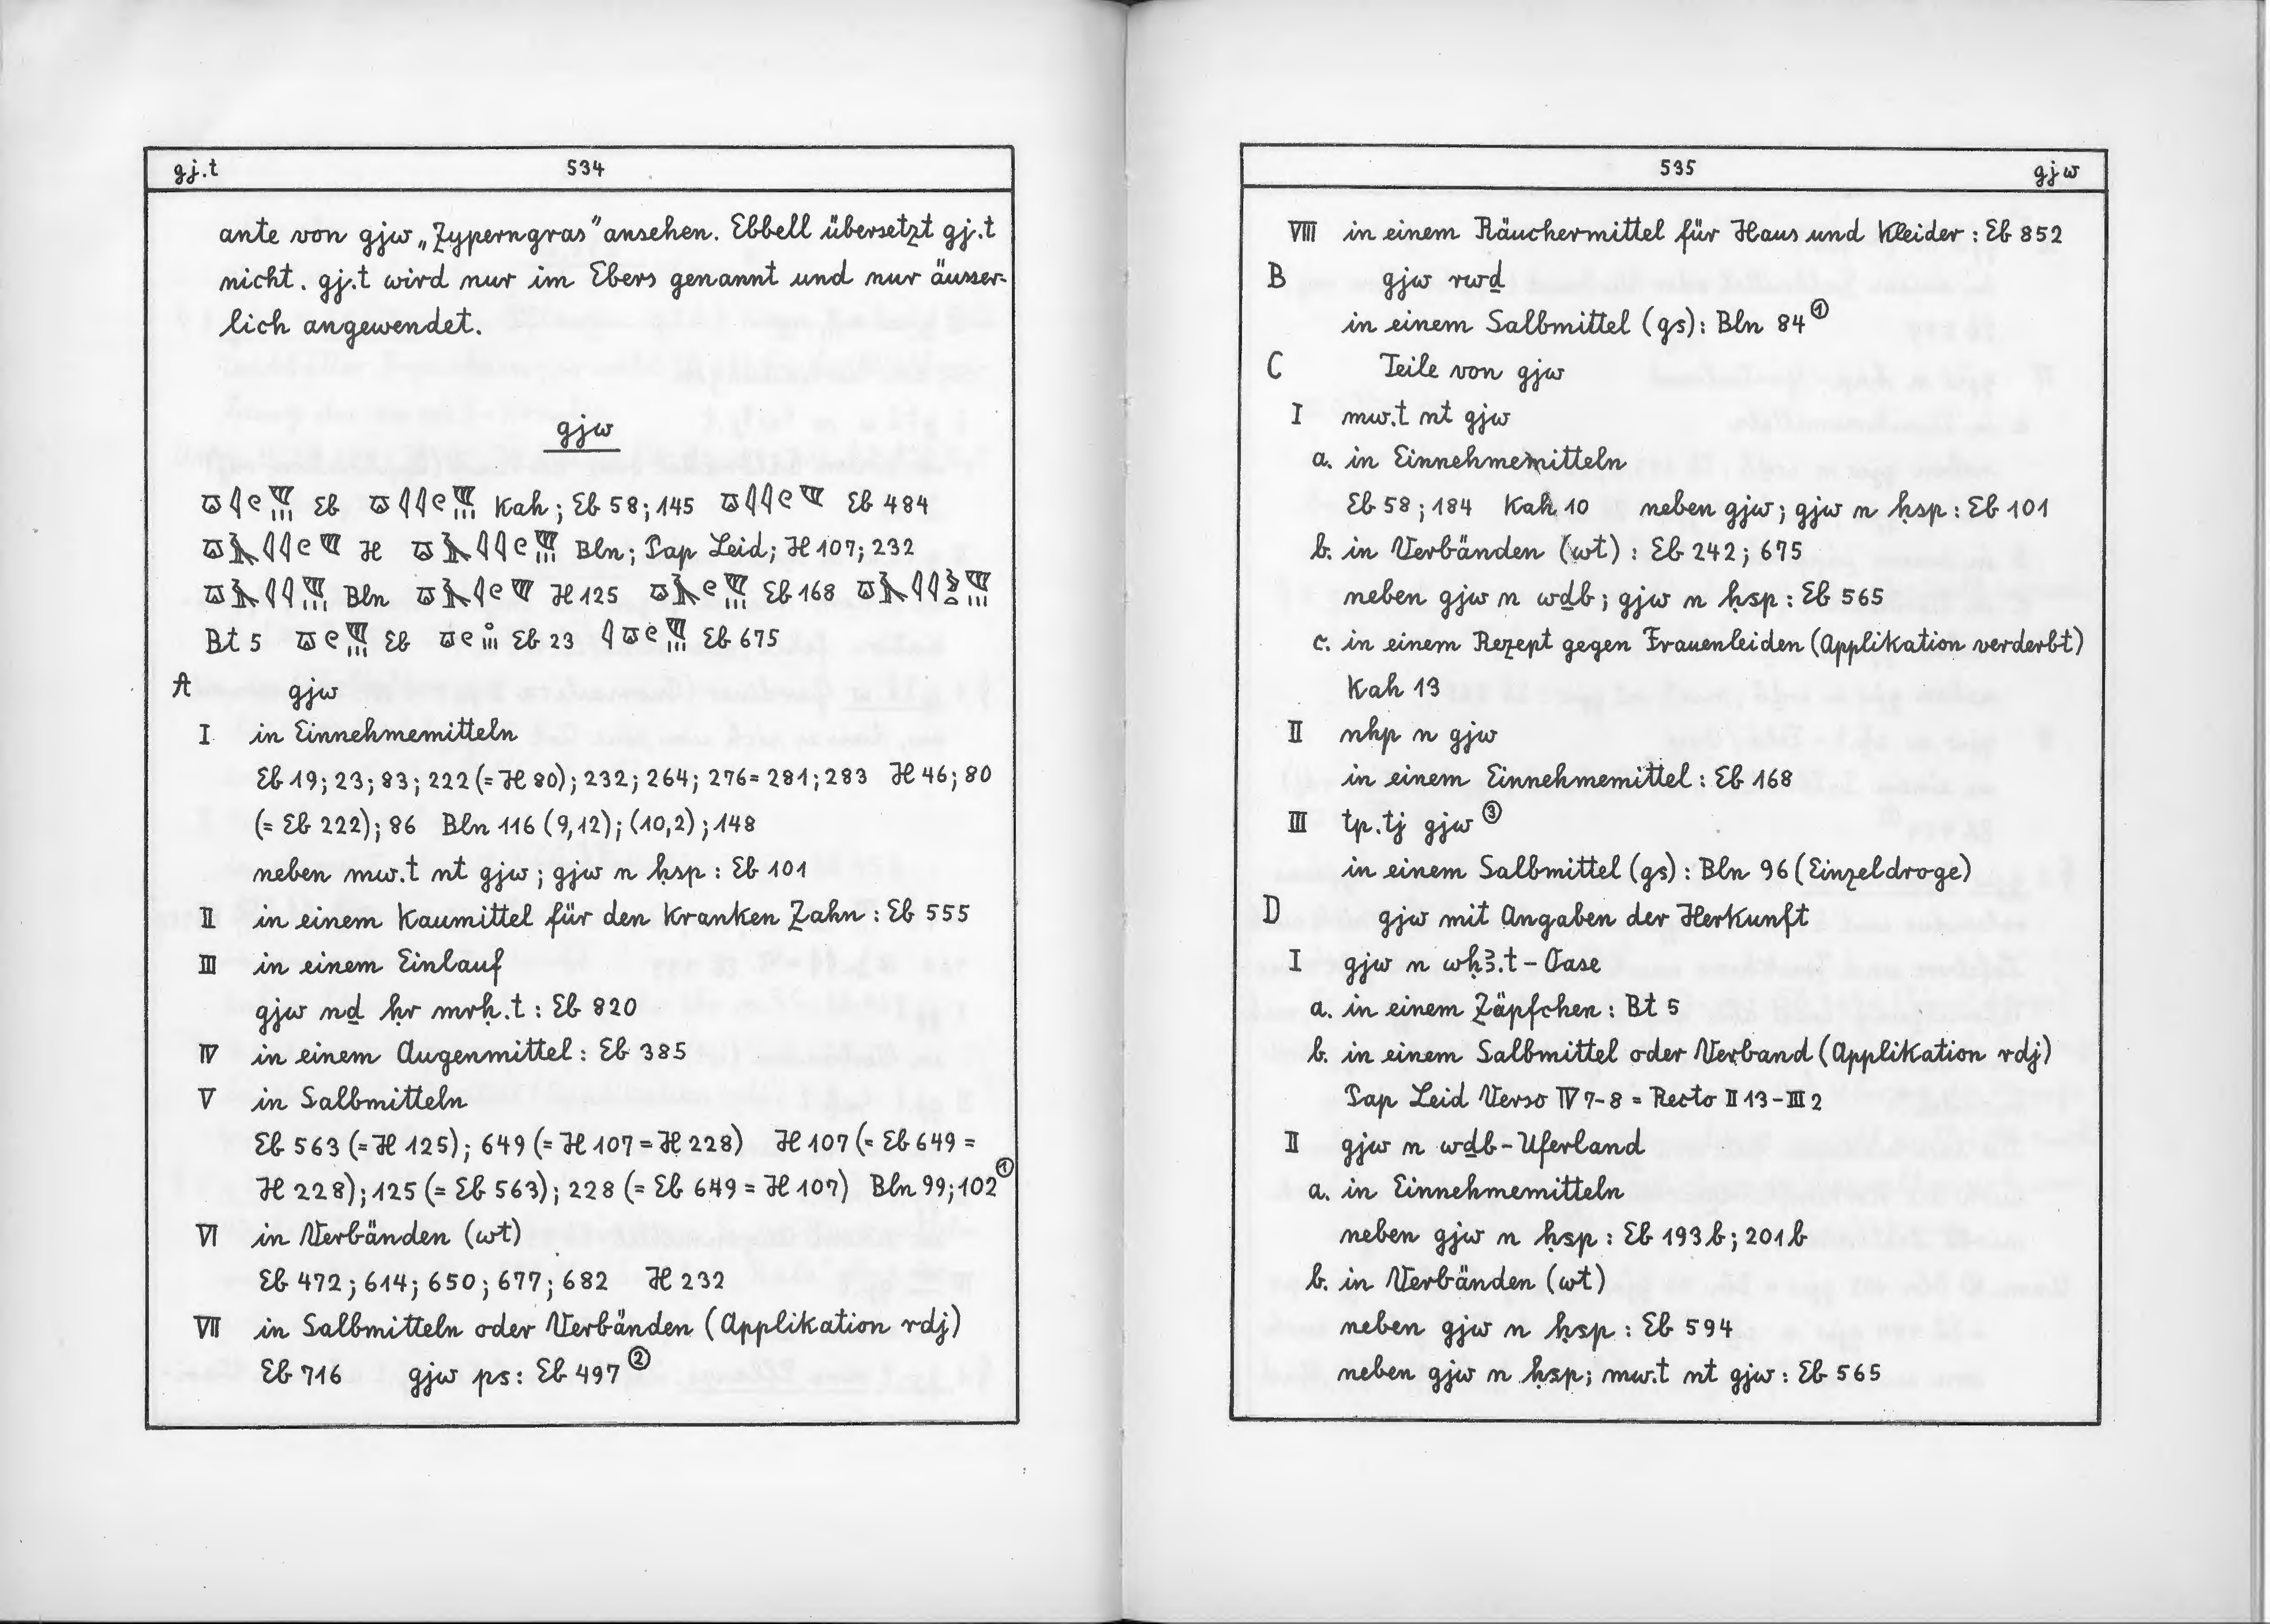 gj.t 534
ante von gjw „Zyperngras" ansehen. Ebbell übersetzt gj.t
nicht. gj.t wird nur im Ebers genannt und nur äusser-
lich angewendet.
gjw
Eb Kah; Eb 58; 145 Eb 484
H Bln; Pap Leid; H 107; 232
Bln H 125 Eb 168
Bt 5 Eb Eb 23 Eb 675
A gjw
I in Einnehmemitteln
Eb 19; 23; 83; 222 (= H 80); 232; 264; 276 = 281; 283 H 46; 80
(= Eb 222); 86 Bln 116 (9,12); (10,2); 148
neben mw.t nt gjw; gjw n ḥsp: Eb 101
II in einem Kaumittel für den kranken Zahn: Eb 555
III in einem Einlauf
gjw nḏ ḥr mrḥ.t: Eb 820
IV in einem Augenmittel: Eb 385
V in Salbmitteln
Eb 563 (= H 125); 649 (= H 107 = H 228) H 107 (= Eb 649 =
H 228); 125 (= Eb 563); 228 (= Eb 649 = H 107) Bln 99; 102 ①
VI in Verbänden (wt)
Eb 472; 614; 650; 677; 682 H 232
VII in Salbmitteln oder Verbänden (Applikation rdj)
Eb 716 gjw ps: Eb 497 ②
535 gjw
VIII in einem Räuchermittel für Haus und Kleider: Eb 852
B gjw rwḏ
in einem Salbmittel (gs): Bln 84 ①
C Teile von gjw
I mw.t nt gjw
a. in Einnehmemitteln
Eb 58; 184 Kah 10 neben gjw; gjw n ḥsp: Eb 101
b. in Verbänden (wt): Eb 242; 675
neben gjw n wḏb; gjw n ḥsp: Eb 565
c. in einem Rezept gegen Frauenleiden (Applikation verderbt)
Kah 13
II nhp n gjw
in einem Einnehmemittel: Eb 168
III tp.tj gjw ③
in einem Salbmittel (gs): Bln 96 (Einzeldroge)
D gjw mit Angaben der Herkunft
I gjw n wḥꜣ.t - Oase
a. in einem Zäpfchen: Bt 5
b. in einem Salbmittel oder Verband (Applikation rdj)
Pap Leid Verso IV 7-8 = Recto II 13 - III 2
II gjw n wḏb - Uferland
a. in Einnehmemitteln
neben gjw n ḥsp: Eb 193b; 201b
b. in Verbänden (wt)
neben gjw n ḥsp: Eb 594
neben gjw n ḥsp; mw.t nt gjw: Eb 565